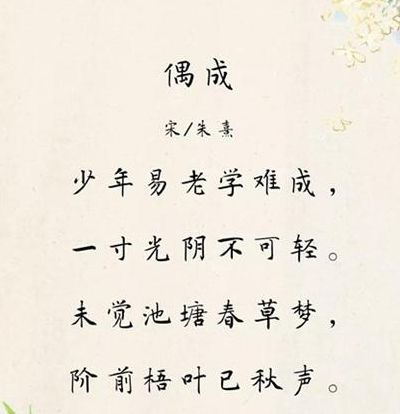 偶成
宋/朱熹
少年易老学难成，
一寸光阴不可轻。
未觉池塘春草梦，
阶前梧叶已秋声。